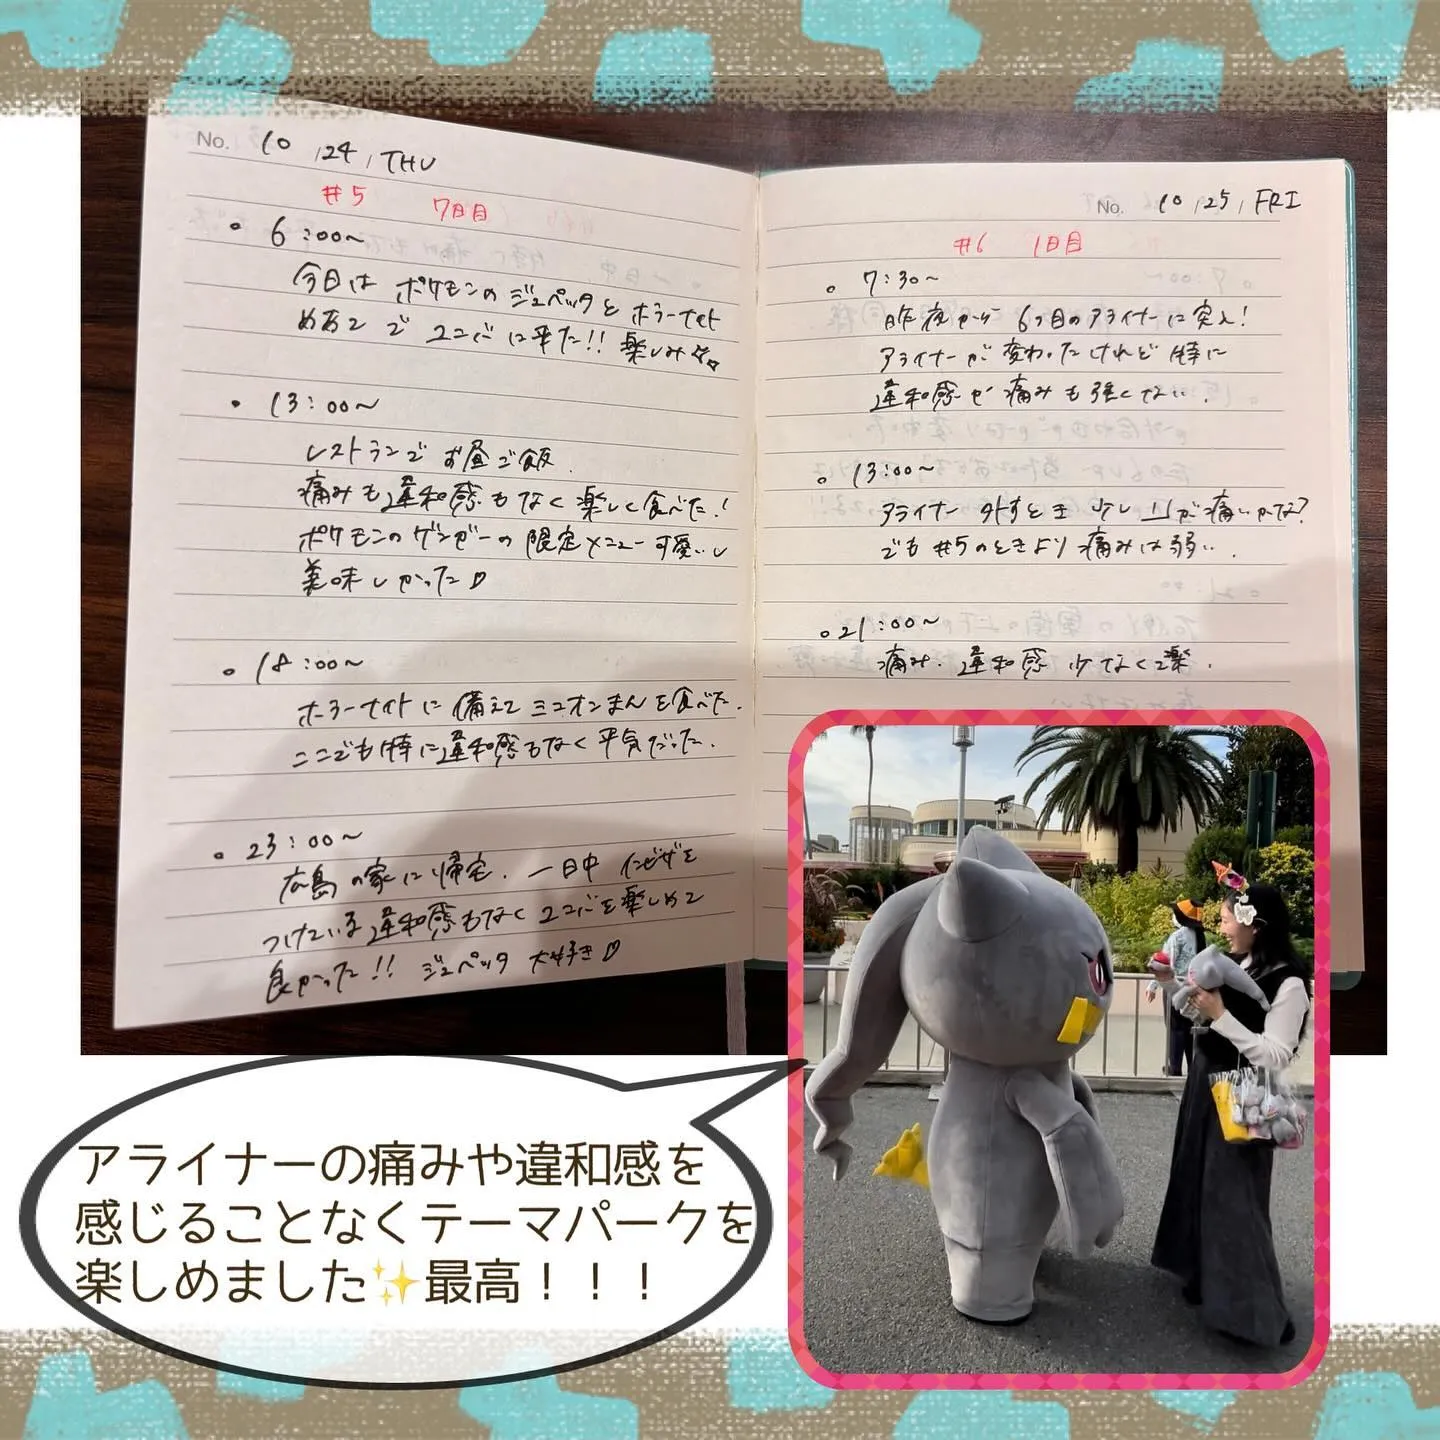 No. 10 / 24 / THU
#5 7日目
• 6:00~
今日は ポケモンの ジュペッタと ホラーナイト
めあてで ユニバに来た!! 楽しみ☆☆
• 13:00~
レストランで お昼ご飯.
痛みも違和感もなく楽しく食べた!
ポケモンのゲンガーの限定メニュー可愛いし
美味しかった♡
• 18:00~
ホラーナイトに備えて ミニオンまんを食べた.
ここでも特に違和感もなく平気だった.
• 23:00~
広島の家に帰宅. 一日中 インビザを
つけている違和感もなくユニバを楽しめて
良かった!! ジュペッタ 大好き♡
No. 10 / 25 / FRI
#6 1日目
• 7:30~
昨夜から 6つ目のアライナーに突入!
アライナーが変わったけれど特に
違和感や痛みも強くない.
• 13:00~
アライナー外すとき少し が痛いかな?
でも#5のときより痛みは弱い.
• 21:00~
痛み.違和感少なくて楽.
アライナーの痛みや違和感を
感じることなくテーマパークを
楽しめました✨最高！！！